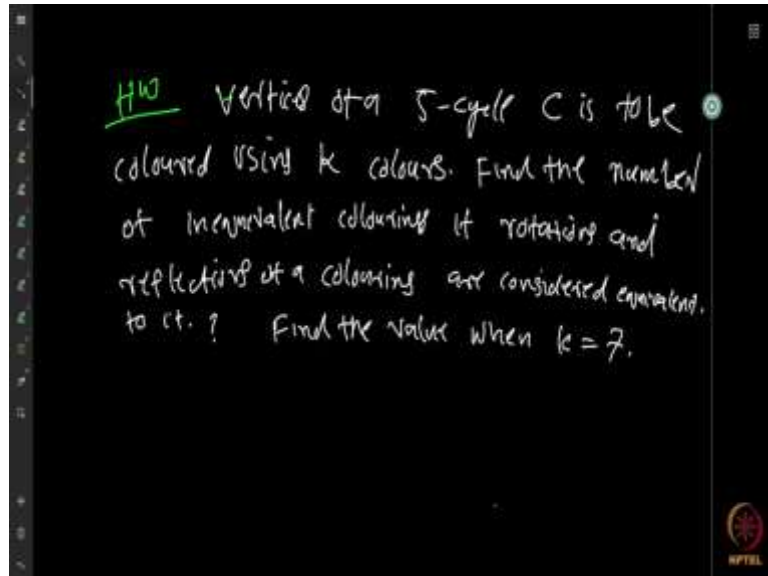 HW Vertices of a 5-cycle C is to be
coloured using k colours. Find the number
of inequivalent colourings if rotations and
reflections of a colouring are considered equivalent.
to it. ? Find the value when k = 7.
NPTEL